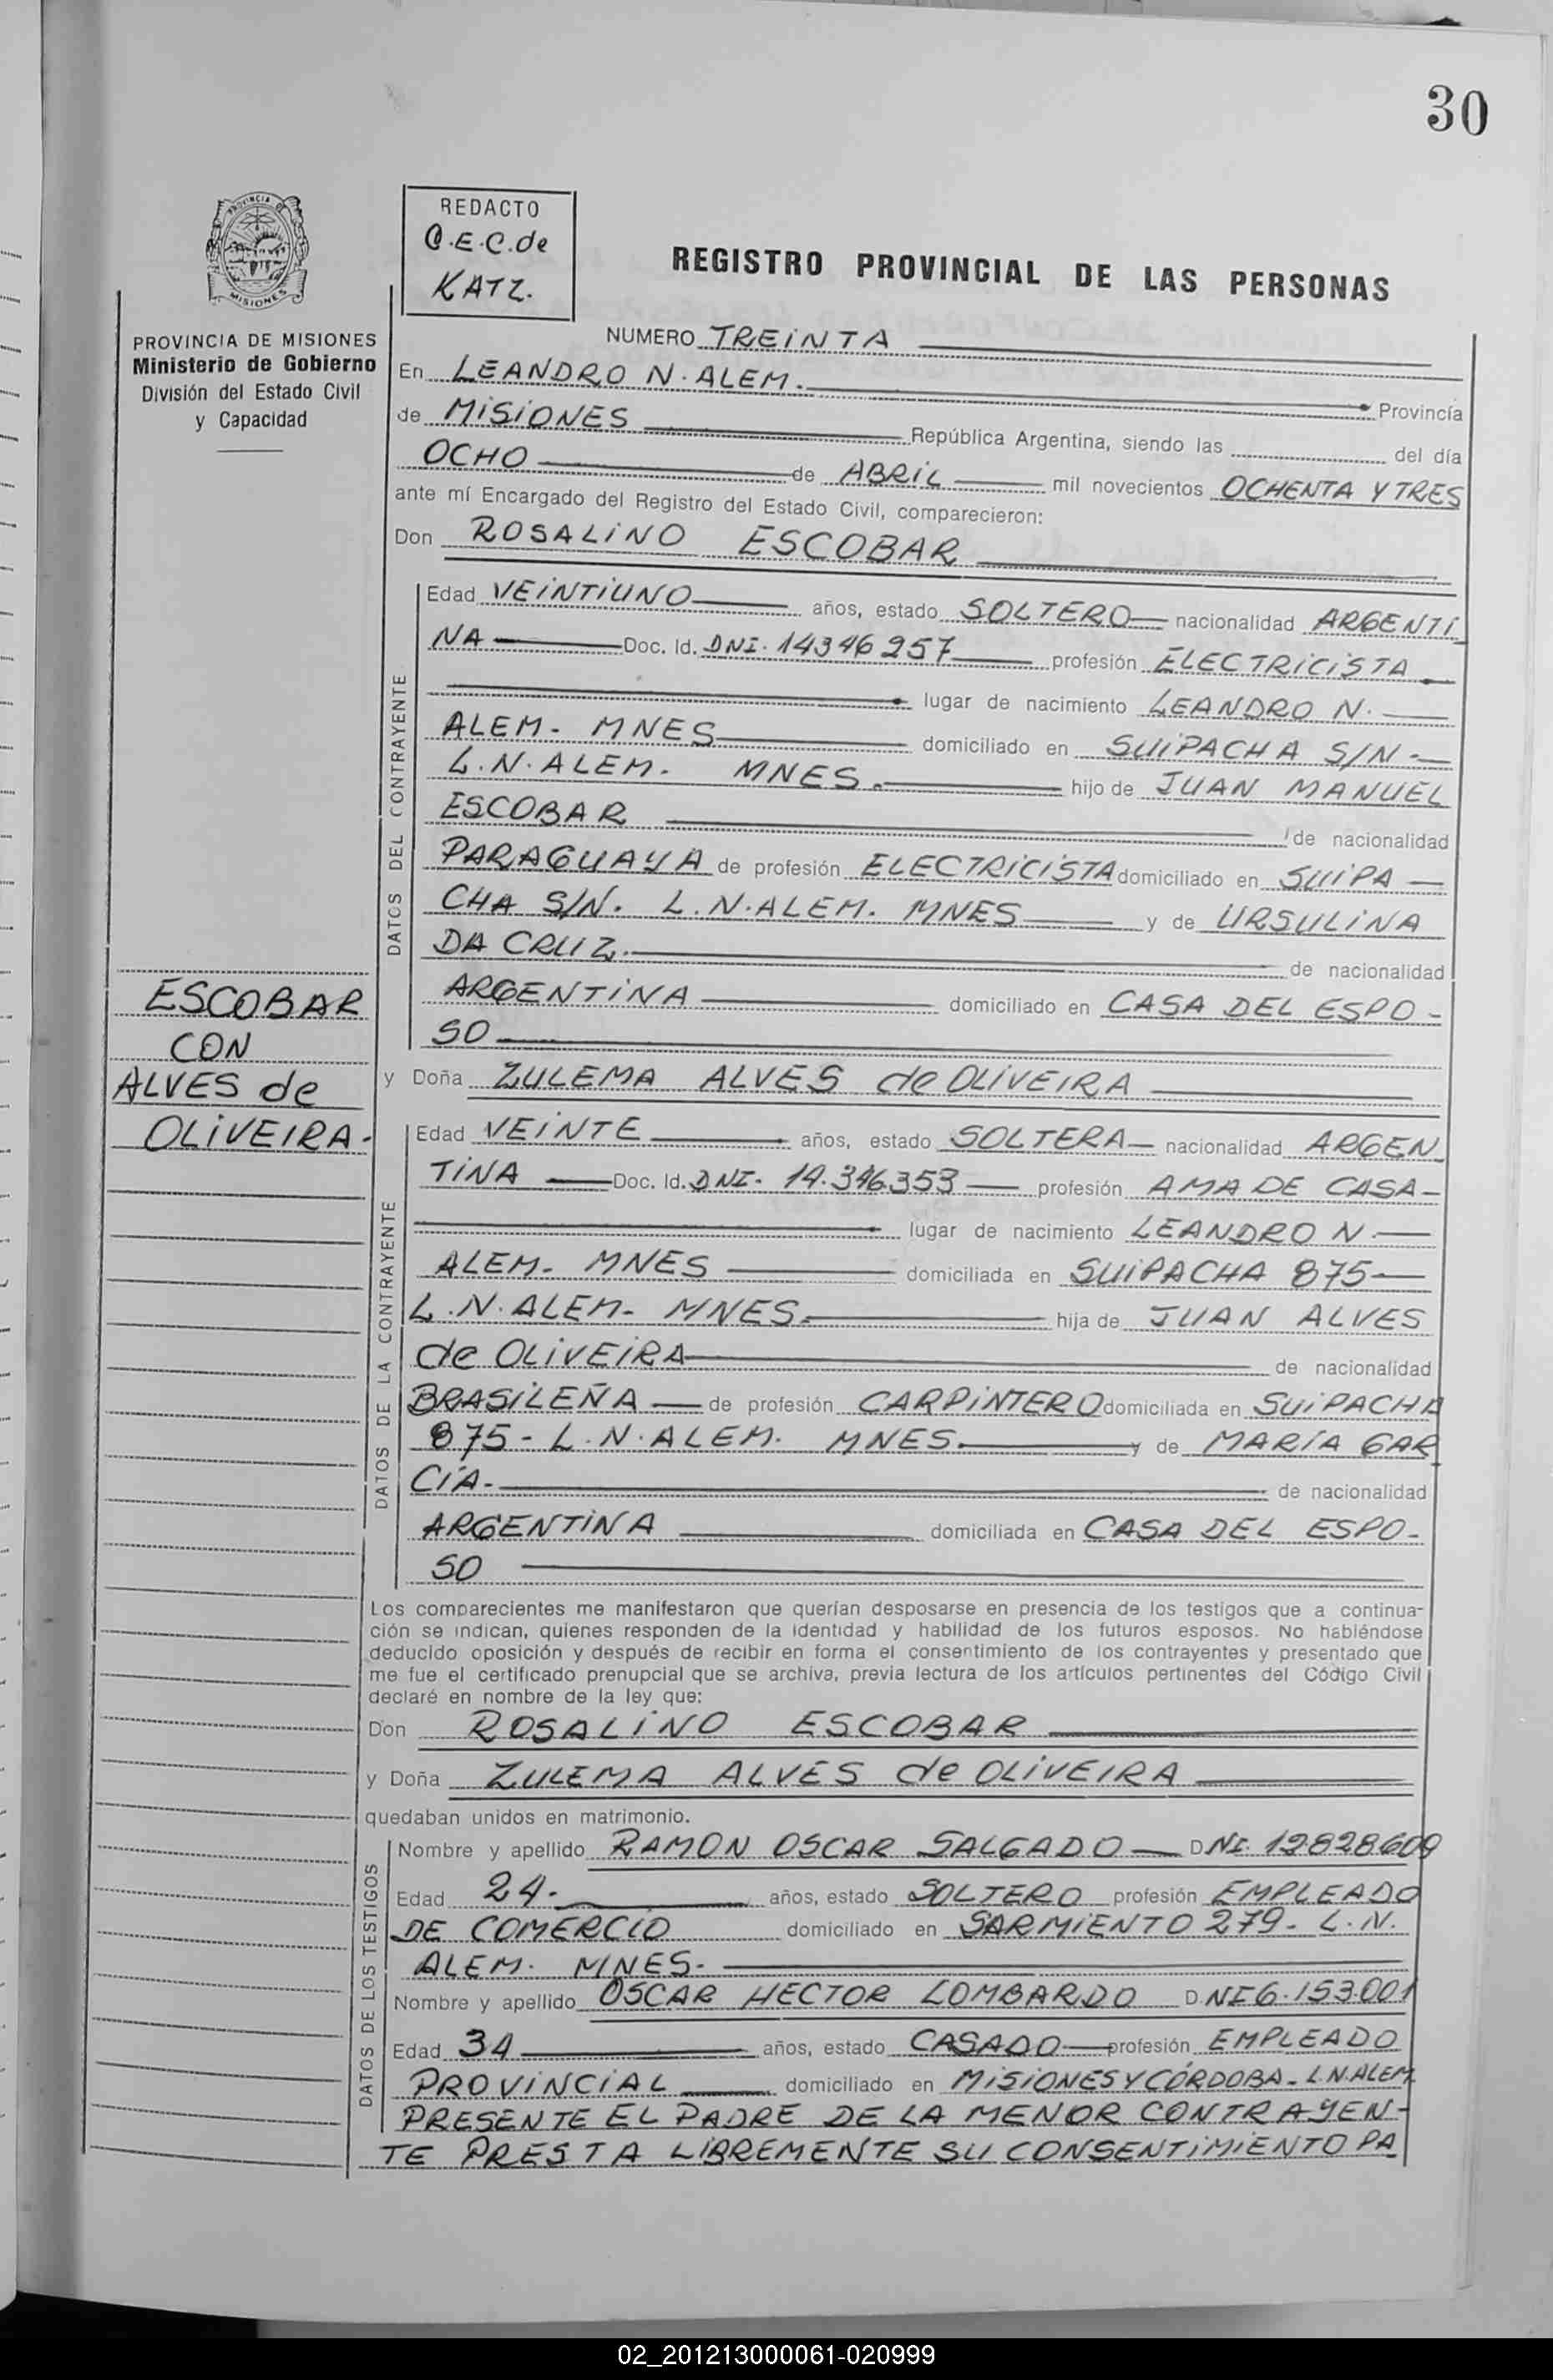 30
PROVINCIA DE
MISIONES
REDACTO
O.E.C.de
KATZ.
REGISTRO PROVINCIAL DE LAS PERSONAS
PROVINCIA DE MISIONES
Ministerio de Gobierno
División del Estado Civil
y Capacidad
NUMERO TREINTA
En LEANDRO N. ALEM. Provincia
de MISIONES República Argentina, siendo las del día
OCHO de ABRIL mil novecientos OCHENTA Y TRES
ante mí Encargado del Registro del Estado Civil, comparecieron:
Don ROSALINO ESCOBAR
DATOS DEL CONTRAYENTE
Edad VEINTIUNO años, estado SOLTERO nacionalidad ARGENTI
NA Doc. Id. DNI. 14346257 profesión ELECTRICISTA
lugar de nacimiento LEANDRO N.
ALEM- MNES domiciliado en SUIPACHA S/N.-
L.N.ALEM. MNES. hijo de JUAN MANUEL
ESCOBAR de nacionalidad
PARAGUAYA de profesión ELECTRICISTA domiciliado en SUIPA-
CHA S/N. L.N.ALEM. MNES y de URSULINA
DA CRUZ. de nacionalidad
ARGENTINA domiciliado en CASA DEL ESPO-
SO
ESCOBAR
CON
ALVES de
OLIVEIRA-
y Doña ZULEMA ALVES de OLIVEIRA
DATOS DE LA CONTRAYENTE
Edad VEINTE años, estado SOLTERA nacionalidad ARGEN
TINA Doc. Id. DNI- 14.346353 profesión AMA DE CASA-
lugar de nacimiento LEANDRO N.
ALEM- MNES domiciliada en SUIPACHA 875-
L.N.ALEM- MNES. hija de JUAN ALVES
de OLIVEIRA de nacionalidad
BRASILEÑA de profesión CARPINTERO domiciliada en SUIPACHA
875- L.N.ALEM. MNES. y de MARÍA GAR
CÍA- de nacionalidad
ARGENTINA domiciliada en CASA DEL ESPO-
SO
Los comparecientes me manifestaron que querían desposarse en presencia de los testigos que a continua-
ción se indican, quienes responden de la identidad y habilidad de los futuros esposos. No habiéndose
deducido oposición y después de recibir en forma el consentimiento de los contrayentes y presentado que
me fue el certificado prenupcial que se archiva, previa lectura de los artículos pertinentes del Código Civil
declaré en nombre de la ley que:
Don ROSALINO ESCOBAR
y Doña ZULEMA ALVES de OLIVEIRA
quedaban unidos en matrimonio.
DATOS DE LOS TESTIGOS
Nombre y apellido RAMON OSCAR SALGADO DNI. 12.828.609
Edad 24. años, estado SOLTERO profesión EMPLEADO
DE COMERCIO domiciliado en SARMIENTO 279- L.N.
ALEM. MNES-
Nombre y apellido OSCAR HECTOR LOMBARDO D.NI 6.153.001
Edad 34 años, estado CASADO profesión EMPLEADO
PROVINCIAL domiciliado en MISIONES Y CÓRDOBA- L.N.ALEM
PRESENTE EL PADRE DE LA MENOR CONTRAYEN-
TE PRESTA LIBREMENTE SU CONSENTIMIENTO PA
02_201213000061-020999